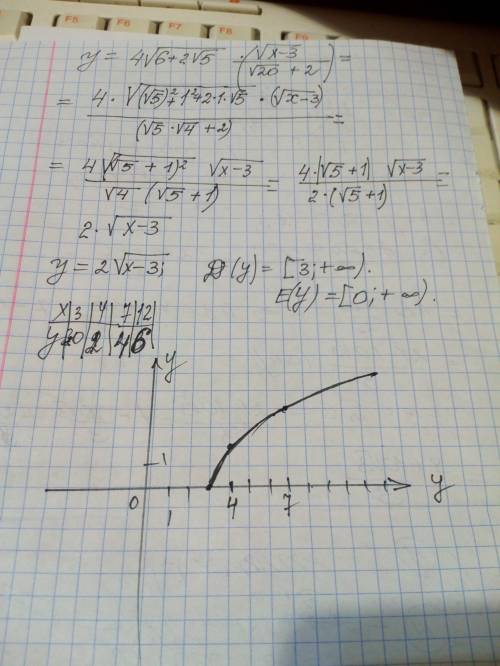 F5 F6 F7 F8
y = 4√6+2√5 · (√x-3 / √20 + 2) =
= 4 · √(√5)²+1²+2·1·√5 · (√x-3) / (√5 · √4 + 2) =
= 4√(√5 + 1)² √x-3 / √4 (√5 + 1) = 4·|√5+1| √x-3 / 2·(√5+1) =
2·√x-3
y = 2√x-3; D(y) = [3; +∞).
E(y) = [0; +∞).
x | 3 | 4 | 7 | 12
y | 0 | 2 | 4 | 6
y
1
0 1 4 7 y